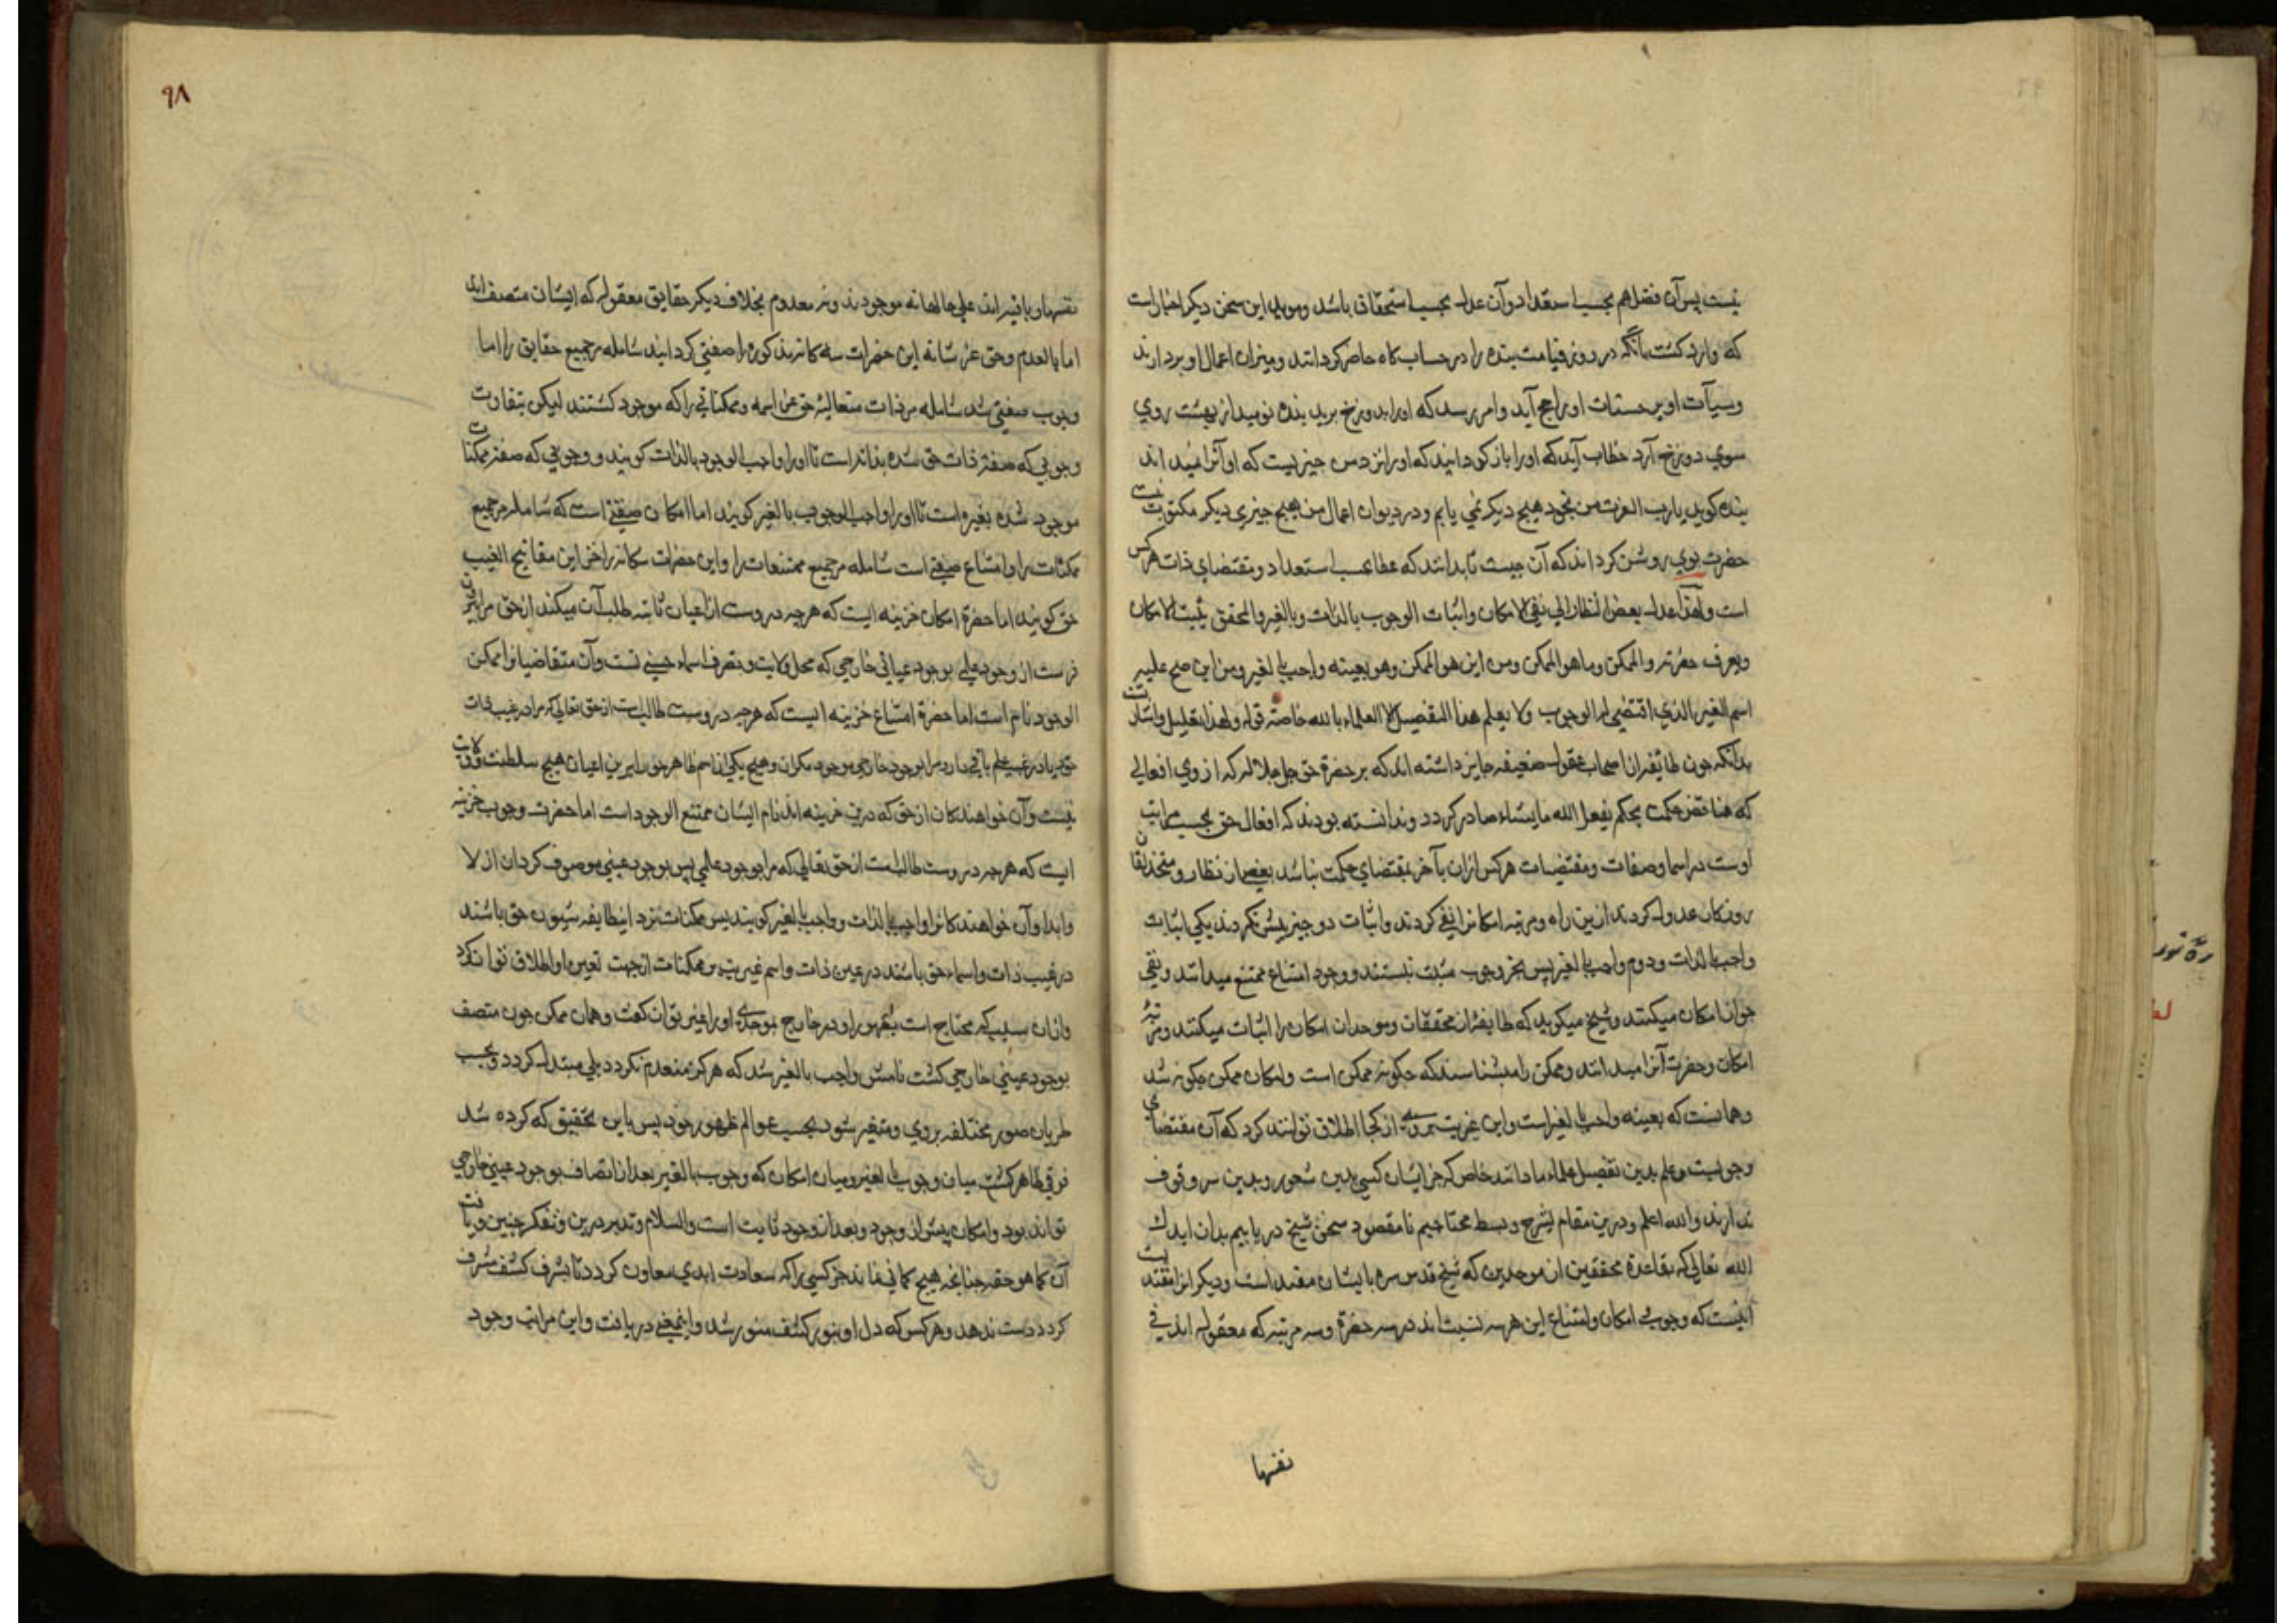 نیست پس آن فضل هم بحسب استعداد و آن عدل بحسب استحقاق باشد و موید این سخن دیکر اخبار است
که وارد کشت بآنکه در روز قیامت بنده را در حساب کاه حاضر کردانند و میزان اعمال او بردارند
و سیآت او بر حسنات او راجح آید و امر رسد که او را بدوزخ برید بنده نومید از بهشت روی
سوی دوزخ آرد خطاب آید که او را باز کردانید که او را نزد من چیزیست که او آنرا نمیداند
بنده کوید یا رب العزت من بخود هیچ دیکر نمی یابم و در دیوان اعمال من هیچ چیزی دیکر مکتوب نیست
حضرت نبوی روشن کرداند که آن چیست تا بدانند که عطا بحسب استعداد و مقتضای ذات هرکس
است ولهذا عدل بعض النظار الی نفی الامکان واثبات الوجوب بالذات وبالغیر والمحقق یثبت الامکان
ویعرف حضرته والممکن وما هو الممکن ومن این هو الممکن وهو بعینه واجب بالغیر ومن این صح علیه
اسم الغیر الذی اقتضی له الوجوب ولا یعلم هذا التفصیل الا العلماء بالله خاصة قوله ولهذا تعلیل واشارت
بدانکه چون طایفه از اصحاب عقول ضعیفه جایز داشته اند که بر حضرة حق جل جلاله که از وی افعالی
که مناقض حکمت بحکم یفعل الله ما یشاء صادر کردد و ندانسته بودند که افعال حق بحسب مراتب
اوست در اسما و صفات و مقتضیات هرکس از ان بآخر بمقتضای حکمت نباشد بعضی از نظار و
روزکان عدول کردند ازین راه و مرتبه امکانرا نفی کردند و اثبات دو چیز بیش نکردند یکی اثبات
واجب بالذات و دوم واجب بالغیر پس بجز وجوب مثبت نیستند و وجود امتناع ممتنع میدانند و نفی
جواز امکان میکنند و شیخ میکوید که طایفه از محققان و موحدان امکان را اثبات میکنند و مرتبهٔ
امکان و حضرت آنرا میدانند و ممکن را میشناسند که چکونه ممکن است و امکان ممکن چکونه شد
و همانست که بعینه واجب بالغیر است و این غیریت بر وی از کجا اطلاق توانند کرد که آن مقتضای
وجوبست و علم بدین تفصیل علماء ما دانند خاص که جز ایشان کسی بدین شعور و بدین سر وقوف
ندارند والله اعلم و درین مقام بشرح و بسط محتاجیم تا مقصود سخن شیخ دریابیم بدان ایدک
الله تعالی که بقاعدهٔ محققین از موحدین که شیخ قدس سره بایشان مقتد است و دیکر انرا مقتداست
اینست که وجوب و امکان و امتناع این هرسه نسبت اند در سه حضرة و سه مرتبه که معقوله اند فی
نفسها
۹۸
نفسها و باقیه اند علی حالها نه موجودند و نه معدوم بخلاف دیکر حقایق معقوله که ایشان متصف اند
اما بالعدم و حق عز شانه این حضرات سه کانه مذکوره را صفتی کردانید شامله مر جمیع حقایق را اما
وجوب صفتی شد شامله مر ذات متعالیهٔ حق عز اسمه و ممکناتی را که موجود کشتند لیکن بتفاوت
وجوبی که صفت ذات حق شده بذاته است تا او را واجب الوجود بالذات کویند و وجوبی که صفت ممکنات
موجود شده بغیره است تا او را واجب الوجوب بالغیر کویند اما امکان صفتی است که شامله مر جمیع
ممکنات را و امتناع صفتی است شامله مر جمیع ممتنعات را و این حضرات سکانه را خزاین مفاتیح الغیب
حق کویند اما حضرة امکان خزینه ایست که هرچه دروست از اعیان ثابته طلب آن میکند از حق مر
فرست از وجود علمی بوجود عیانی خارجی که محل ولایت و تصرف اسماء حسنی تست و آن متقاضیانرا ممکن
الوجود نام است اما حضرة امتناع خزینه ایست که هرچه دروست طالب است از حق تعالی که مرا در غیب ذات
خود یا در غیب علم باقی دار و مرا بوجود خارجی موجود مکردان و هیچ یکی از اسم ظاهر خود را برین اعیان هیچ سلطنت و ولایت
نیست و آن خواهندکان از حق که درین خزینه اند نام ایشان ممتنع الوجود است اما حضرت وجوب خزینه
ایست که هرچه دروست طالب است از حق تعالی که مرا بوجود علمی پس بوجود عینی موصوف کردان ازلا
و ابدا و آن خواهندکانرا واجب بالذات و واجب بالغیر کویند پس ممکنات نزد این طایفه شئون حق باشند
در غیب ذات و اسماء حق باشند در عین ذات و اسم غیریت بر ممکنات از جهت تعین او اطلاق توان کرد
و از ان سبب که محتاج است بظهور او در خارج بموجدی او را غیر توان کفت و همان ممکن چون متصف
بوجود عینی خارجی کشت نامش واجب بالغیر شد که هرکز منعدم نکردد بلی مبتدل کردد و بحسب
طریان صور مختلفه بر وی و متغیر شود بحسب عوالم ظهور خود پس باین تحقیق که کرده شد
فرق ظاهر کشت میان وجوب بالغیر و میان امکان که وجوب بالغیر بعد از اتصاف بوجود عینی خارجی
تواند بود و امکان پیش از وجود و بعد از وجود ثابت است والسلام و تدبر درین و تفکر چنین و یافت
آن کما هو حقه چنانچه هیچ کمانی نماند جز کسی را که سعادت ابدی معاون کردد تا بشرف کشف مشرف
کردد دست ندهد و هرکس که دل او بنور کشف منور شد و این معنی دریافت و این مراتب وجود